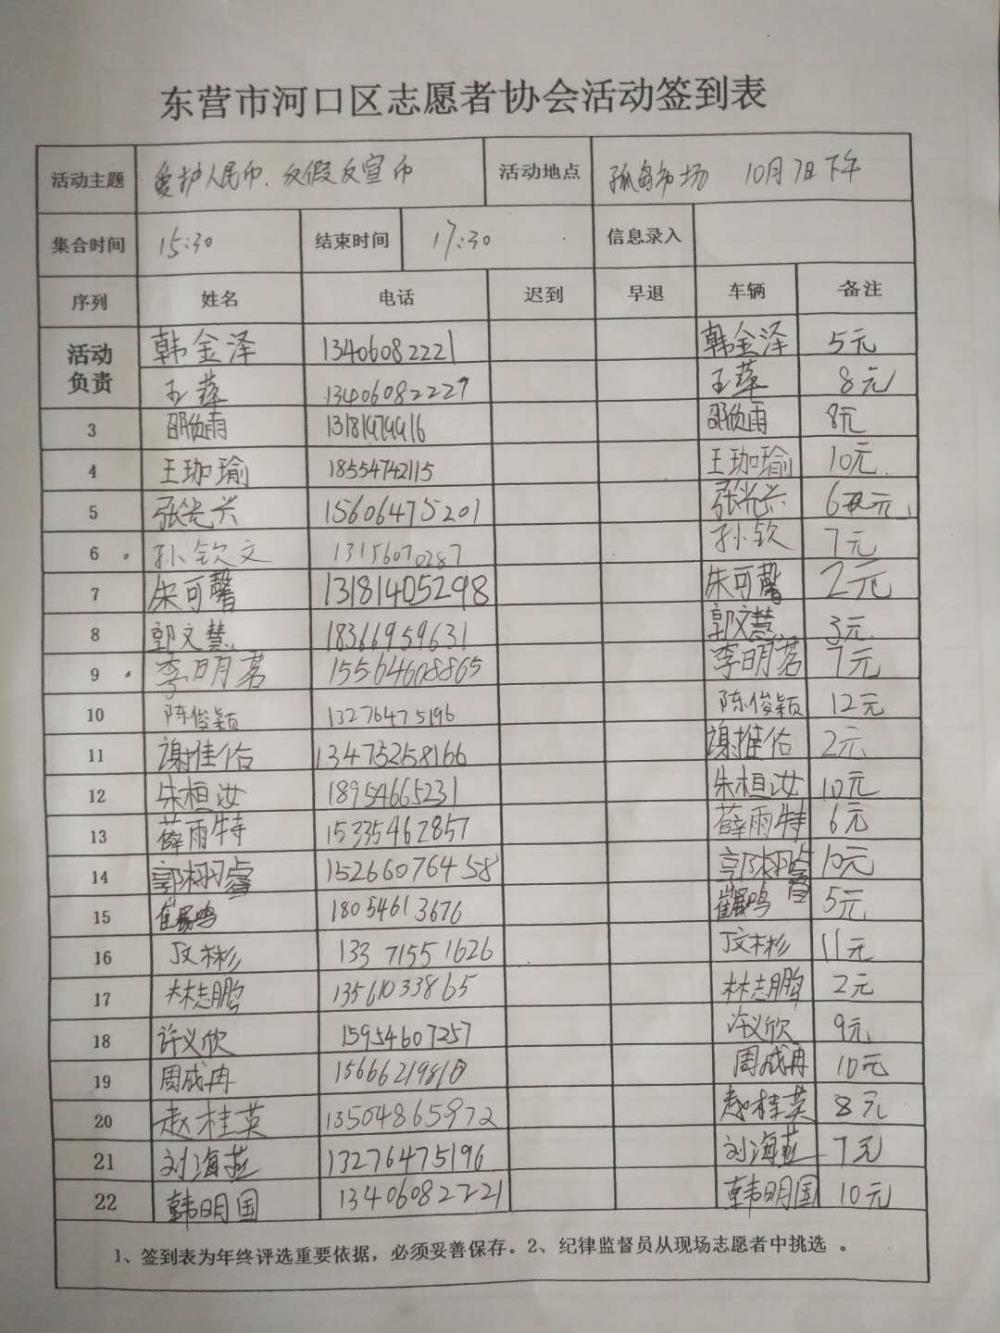 东营市河口区志愿者协会活动签到表
活动主题 爱护人民币、反假反宣币 活动地点 孤岛市场 10月7日下午
集合时间 15:30 结束时间 17:30 信息录入
序列 姓名 电话 迟到 早退 车辆 备注
活动负责 韩金泽 13406082221 韩金泽 5元
王萍 13406082227 王萍 8元
3 邵欣雨 13181979916 邵欣雨 8元
4 王珈瑜 18554742115 王珈瑜 10元
5 张光兴 15606475201 张光兴 6元
6 孙钦文 13156070287 孙钦 7元
7 朱可馨 13181405298 朱可馨 2元
8 郭文慧 18366959631 郭文慧 3元
9 李明茗 15564608865 李明茗 7元
10 陈俊颖 13276475196 陈俊颖 12元
11 谢佳佑 13475258166 谢佳佑 2元
12 朱桓汝 18954665231 朱桓汝 10元
13 薛雨特 15335462857 薛雨特 6元
14 郭栩睿 15266076458 郭栩睿 10元
15 崔展鸣 18054613676 崔展鸣 5元
16 丁文彬 13371551626 丁文彬 11元
17 林志鹏 13561033865 林志鹏 2元
18 许义欣 15954607257 许义欣 9元
19 周成冉 15666219810 周成冉 10元
20 赵桂英 13504865972 赵桂英 8元
21 刘海燕 13276475196 刘海燕 7元
22 韩明国 13406082221 韩明国 10元
1、签到表为年终评选重要依据，必须妥善保存。2、纪律监督员从现场志愿者中挑选 。